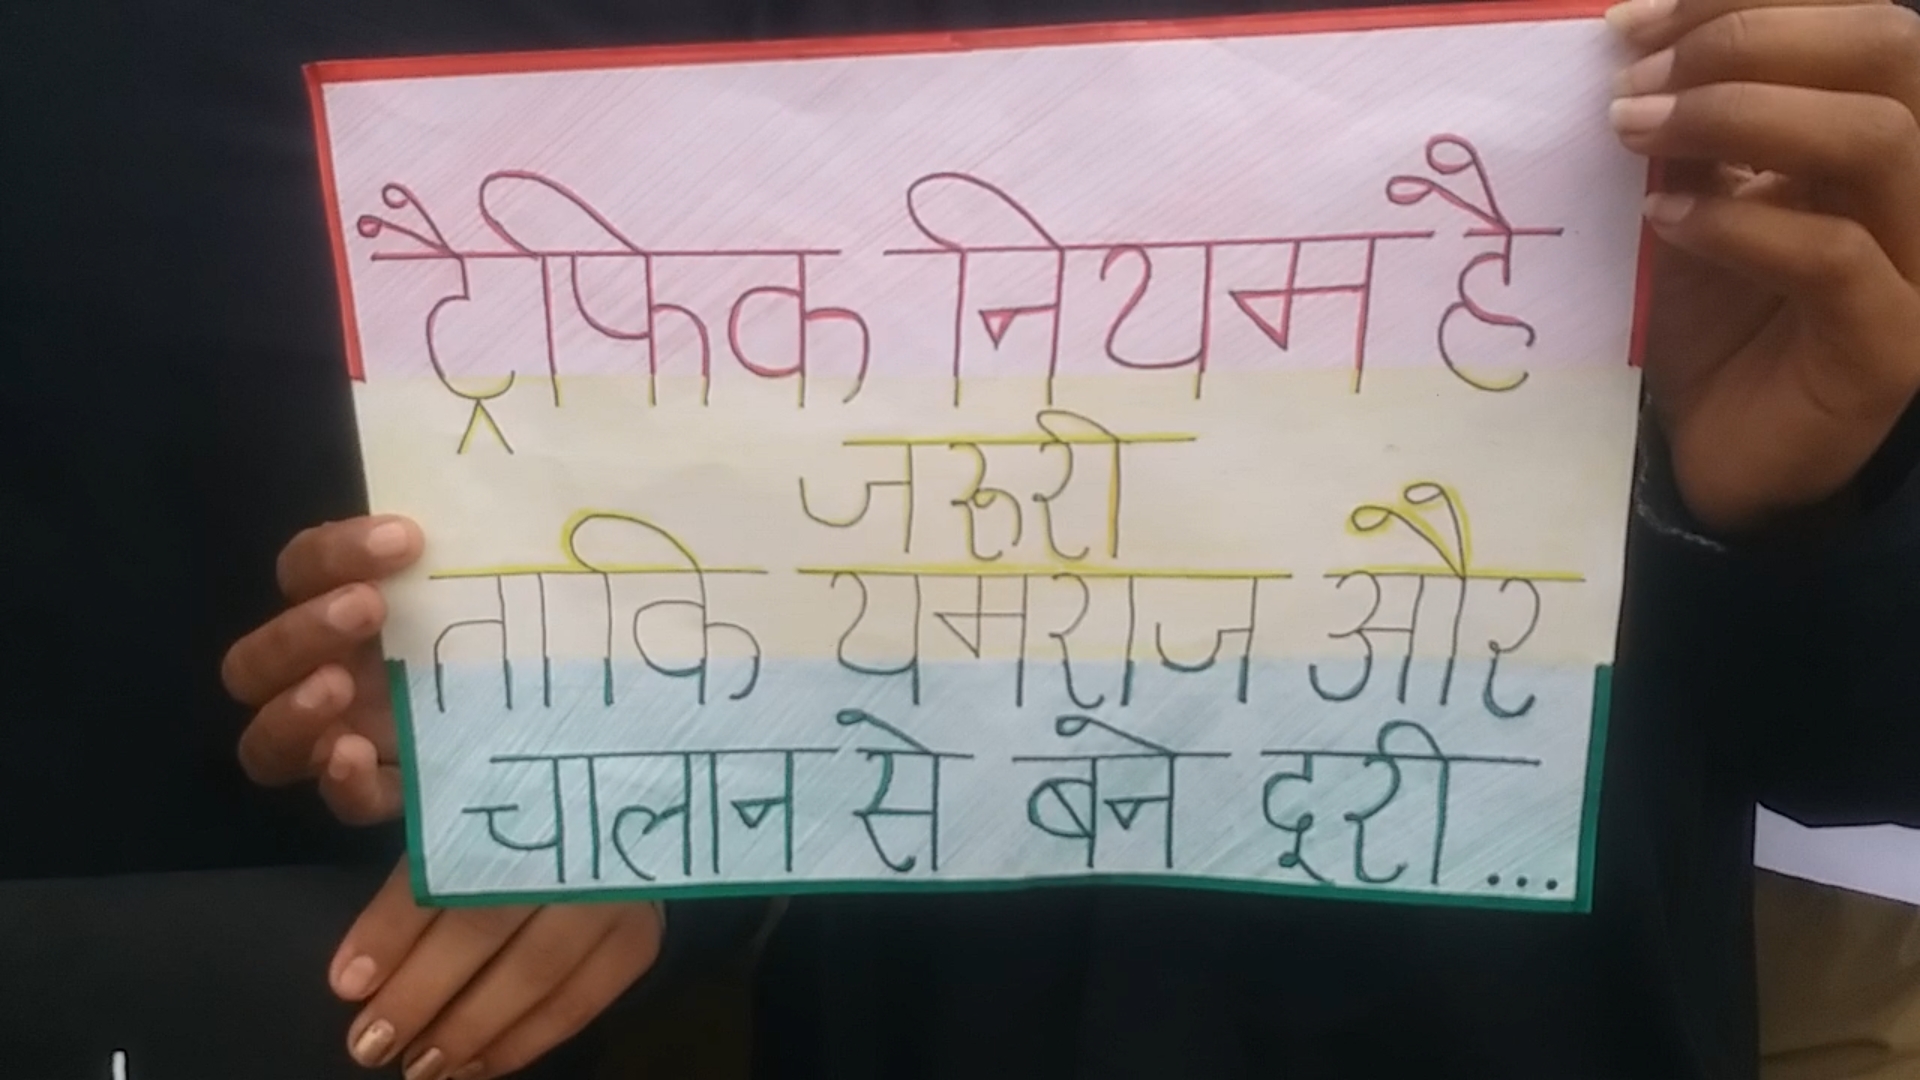 ट्रैफिक नियम है
जरुरी
ताकि यमराज और
चालान से बने दूरी...